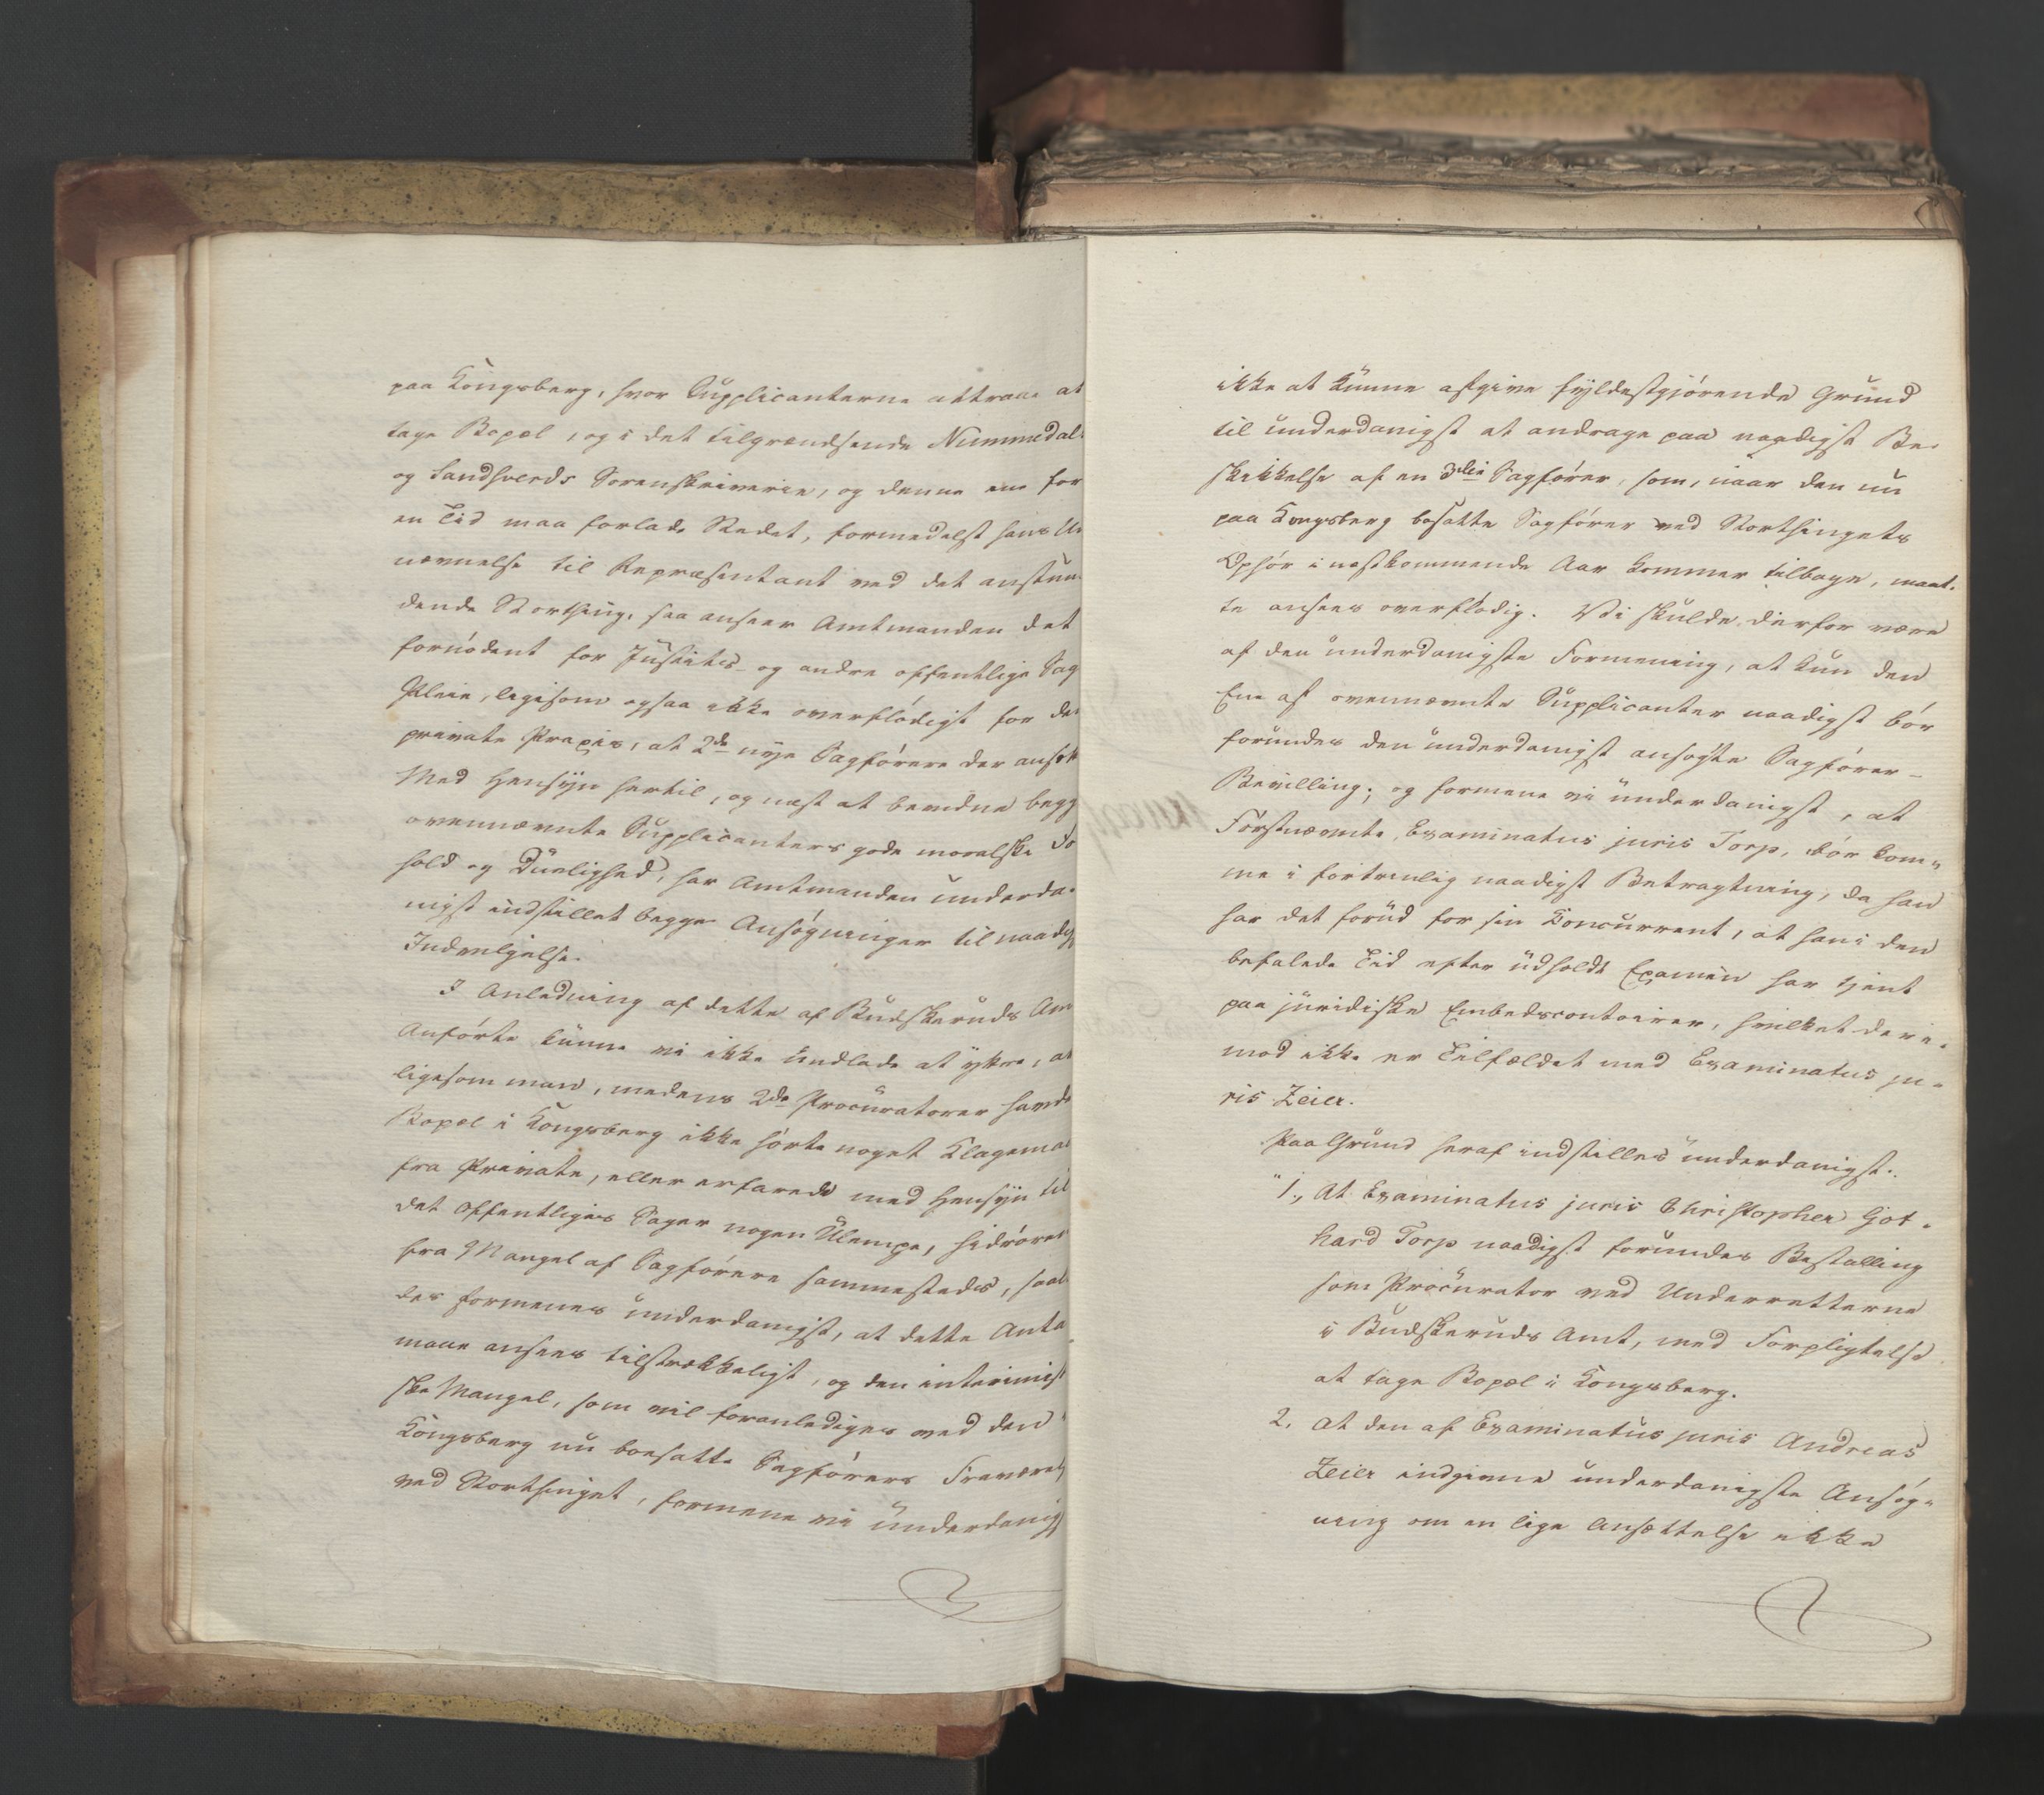 paa Kongsberg, hvor Supplicanterne attraae at
tage Bopæl, og i det tilgrændsende Nummedal
og Sandsverds Sorenskriverie, og denne ene for
en Tid maa forlade Stedet, formedelst hans Ud
nævnelse til Repræsentant ved det anstun
dende Storthing, saa anseer Amtmanden det
fornødent for Justits- og andre offentlige Sag
Pleie, ligesom ogsaa ikke overflødigt for den
private Praxis, at 2de nye Sagførere der ansætt
Med Hensyn hertil, og næst at bevidne begg
ovennævnte Supplicanters gode moralske Fo
hold og Duelighed, har Amtmanden underda-
nigst indstillet begge Ansøgninger til naadig
Indvilgelse.
I Anledning af dette af Budskeruds Am
Anførte kunne vi ikke undlade at yttre, at
ligesom man, medens 2de Procuratorer havde
Bopæl i Kongsberg ikke hørte noget Klagemaa
fra Private, eller erfarede med Hensyn til
det Offentliges Sager nogen Ulempe, hidrører
fra Mangel af Sagførere sammesteds, saal
des formenes underdanigst, at dette Anta
maae ansees tilstrækkeligt, og den interimist
ske Mangel, som vil foranlediges ved den i
Kongsberg nu boesatte Sagførers Fraværel
ved Storthinget, formene vi underdanig
ikke at kunne afgive fyldestgjørende Grund
til underdanigst at andrage paa naadigst Be-
skikkelse af en 3die Sagfører, som, naar den nu
paa Kongsberg bosatte Sagfører ved Storthingets
Ophør i næstkommende Aar kommer tilbage, maat-
te ansees overflødig. Vi skulde derfor være
af den underdanigste Formening, at kun den
Ene af ovennævnte Supplicanter naadigst bør
forundes den underdanigst ansøgte Sagfører-
Bevilling; og formene vi underdanigst, at
Førstnævnte, Examinatus juris Torp, bør kom-
me i fortrinlig naadigst Betragtning, da han
har det forud for sin Concurrent, at han i den
befalede Tid efter udholdt Examen har tjent
paa juridiske Embedscontoirer, hvilket deri-
mod ikke er Tilfældet med Examinatus ju-
ris Zeier.
Paa Grund heraf indstilles underdanigst:
"1., At Examinatus juris Christopher Got-
hard Torp naadigst forundes Bestalling
som Procurator ved Underretterne
i Budskeruds Amt, med Forpligtelse
at tage Bopæl i Kongsberg.
2. At den af Examinatus juris Andreas
Zeier indgivne underdanigste Ansøg-
ning om en lige Ansættelse ikke